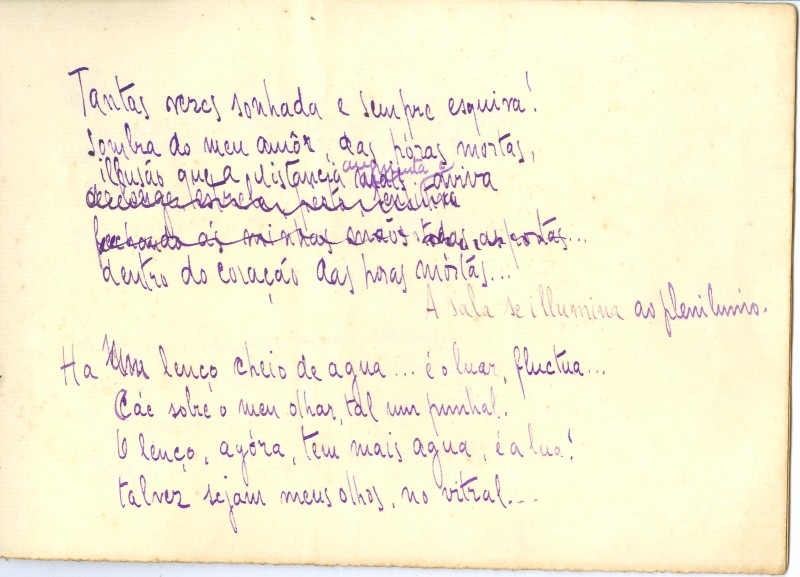 Tantas vezes sonhada e sempre esquiva!
Sombra do meu amôr, das hóras mortas,
augmenta e
illusão que a distancia mais aviva
de longe estrela, perto,
fechando as minhas mãos todas as portas...
dentro do coração das horas mórtas...
A sala se illumina ao plenilunio.
Ha um lenço cheio de agua... é o luar, fluctua...
Cáe sobre o meu olhar, tal um punhal.
O lenço, agóra, tem mais agua, é a lua!
talvez sejam meus olhos, no vitral...